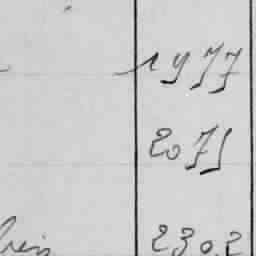 1977
2071
2302